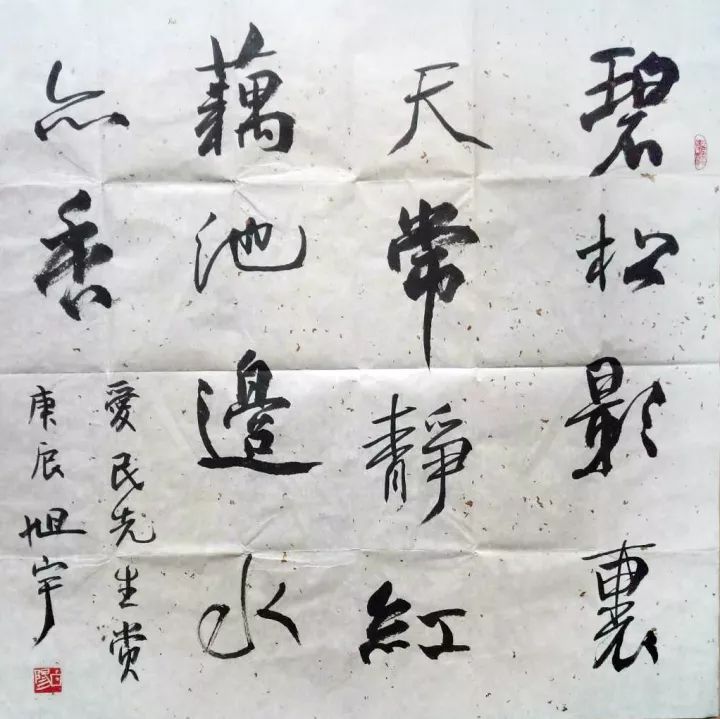 碧松影裏
天常靜紅
藕池邊水
亦香
愛民先生赏
庚辰旭宇